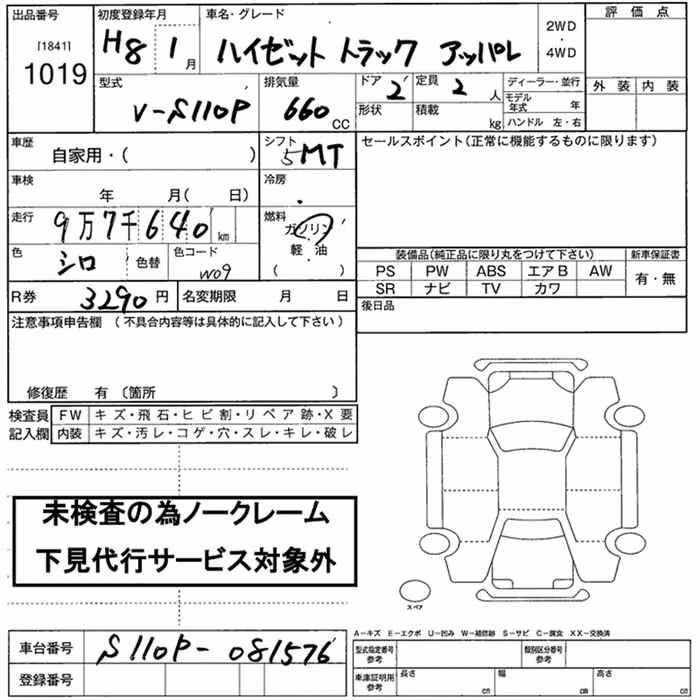 出品番号 初度登録年月 車名・グレード 評価点
[1841] 1019 H8 1月 ハイゼット トラック アッパレ 2WD・4WD
外装 内装
型式 排気量 ドア 2 定員 2人 ディーラー・並行
V-S110P 660 CC 形状 積載 kg モデル年式 年
ハンドル 左・右
車歴 自家用・( ) シフト 5MT セールスポイント(正常に機能するものに限ります)
車検 年 月( 日) 冷房
走行 9万7千640km 燃料 ガソリン
色 シロ 色替 色コード W09 軽・油
( ・ )
装備品(純正品に限り丸をつけて下さい) 新車保証書
PS PW ABS エアB AW 有・無
SR ナビ TV カワ
R券 3290円 名変期限 月 日
後日品
注意事項申告欄 (不具合内容等は具体的に記入して下さい)
修復歴 有 〔箇所 〕
検査員 FW キズ・飛石・ヒビ割・リペア跡・X要
記入欄 内装 キズ・汚レ・コゲ・穴・スレ・キレ・破レ
未検査の為ノークレーム
下見代行サービス対象外
スペア
A-キズ E-エクボ U-凹み W-補修跡 S-サビ C-腐食 XX-交換済
車台番号 S110P-081576
型式指定番号 参考 類別区分番号 参考
登録番号
車庫証明用 参考 長さ cm 幅 cm 高さ cm